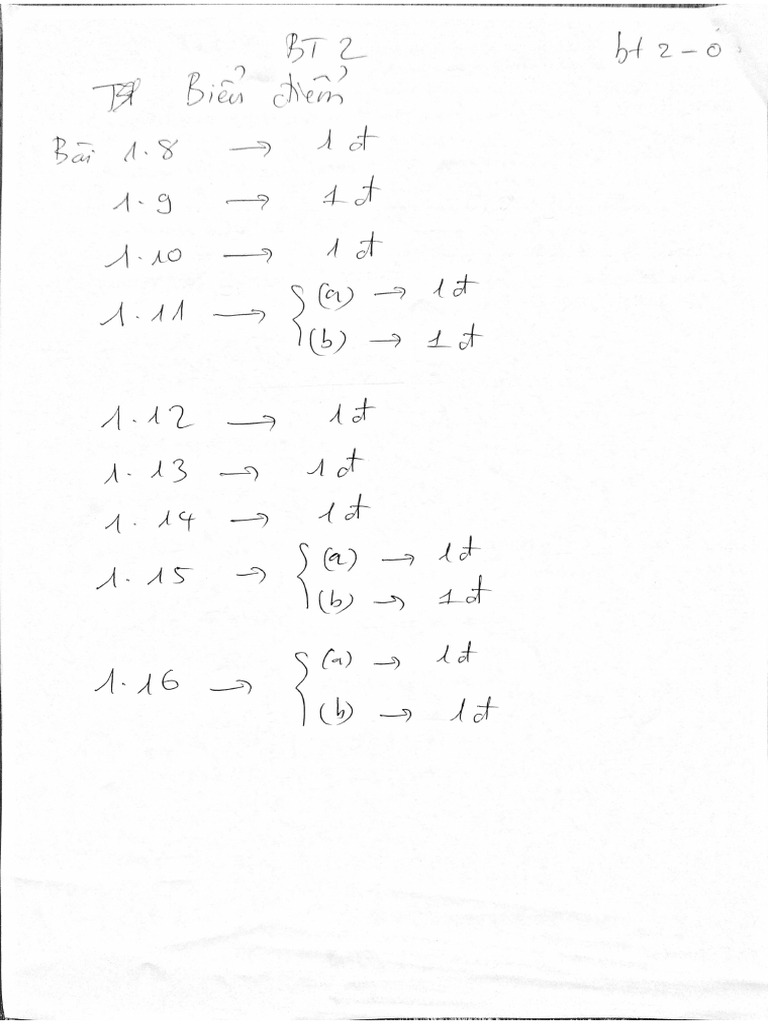 BT 2
bt 2 - 0
Biểu điểm
Bài 1.8 → 1 đ
1.9 → 1 đ
1.10 → 1 đ
1.11 → { (a) → 1 đ
(b) → 1 đ
1.12 → 1 đ
1.13 → 1 đ
1.14 → 1 đ
1.15 → { (a) → 1 đ
(b) → 1 đ
1.16 → { (a) → 1 đ
(b) → 1 đ